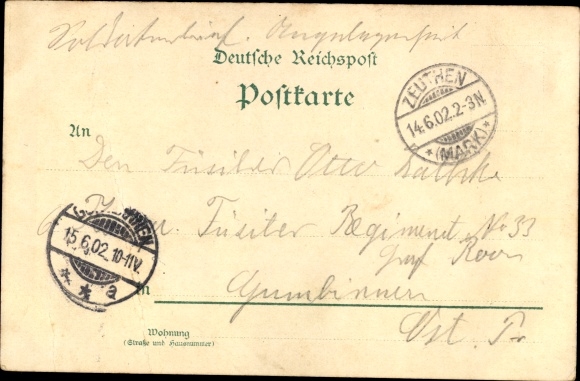 Soldatenbrief. Angelegenheit
Deutsche Reichspost
Postkarte
ZEUTHEN
14.6.02.2-3N
* (MARK) *
An
Den Füsilier Otto
Füsilier Regiment No 33
Graf Roon
15.6.02.10-11V.
* * a
in Gumbinnen
Ost. Pr
Wohnung
(Straße und Hausnummer)